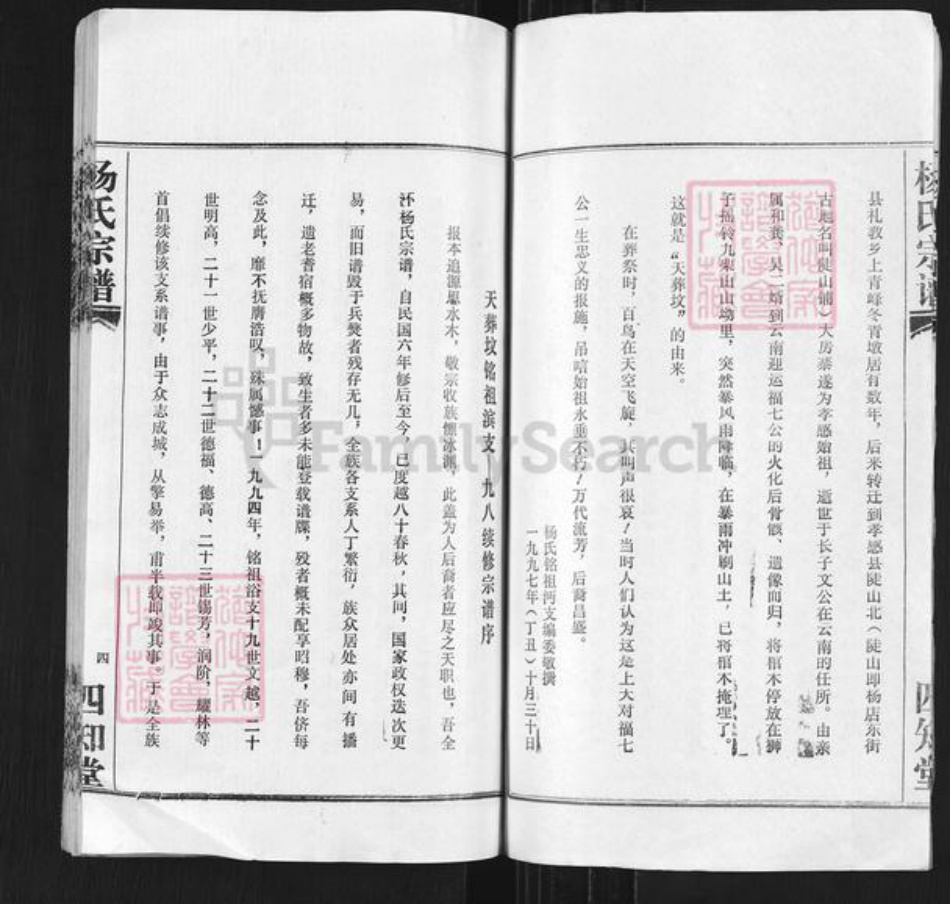 杨氏宗谱
四知堂
县礼教乡上青峰冬青墩居有数年，后来转迁到孝感县陡山北（陡山即杨店东街
古地名叫陡山铺）大房泰遂为孝感始祖，逝世于长子文公在云南的任所。由亲
属和龚、吴二婿到云南迎运福七公的火化后骨骸、遗像而归，将棺木停放在狮
子摇铃九寨山山坳里，突然暴风雨降临，在暴雨冲刷山土，已将棺木掩埋了。
这就是“天葬坟”的由来。
在葬祭时，百鸟在天空飞旋，其叫声很哀！当时人们认为这是上天对福七
公一生忠义的报施，吊唁始祖永垂不朽！万代流芳，后裔昌盛。
杨氏铭祖沔支编委敬撰
一九九七年（丁丑）十月三十日
天葬坟铭祖滨支一九九八续修宗谱序
报本追源思水木，敬宗收族溯冰渊，此盖为人后裔者应尽之天职也，吾全
怀杨氏宗谱，自民国六年修后至今，已度越八十春秋，其间，国家政权迭次更
易，而旧谱毁于兵燹者残存无几，全族各支系人丁繁衍，族众居处亦间有播
迁，遗老耆宿概多物故，致生者多未能登载谱牒，殁者概未配享昭穆，吾侪每
念及此，靡不抚膺浩叹，殊属憾事！一九九四年，铭祖浴支十九世文越，二十
世明高，二十一世少平，二十二世德福、德高、二十三世锡芳，润阶，耀林等
首倡续修该支系谱事，由于众志成城，从擎易举，甫半载即竣其事。于是全族
杨氏宗谱
四
四知堂
FamilySearch